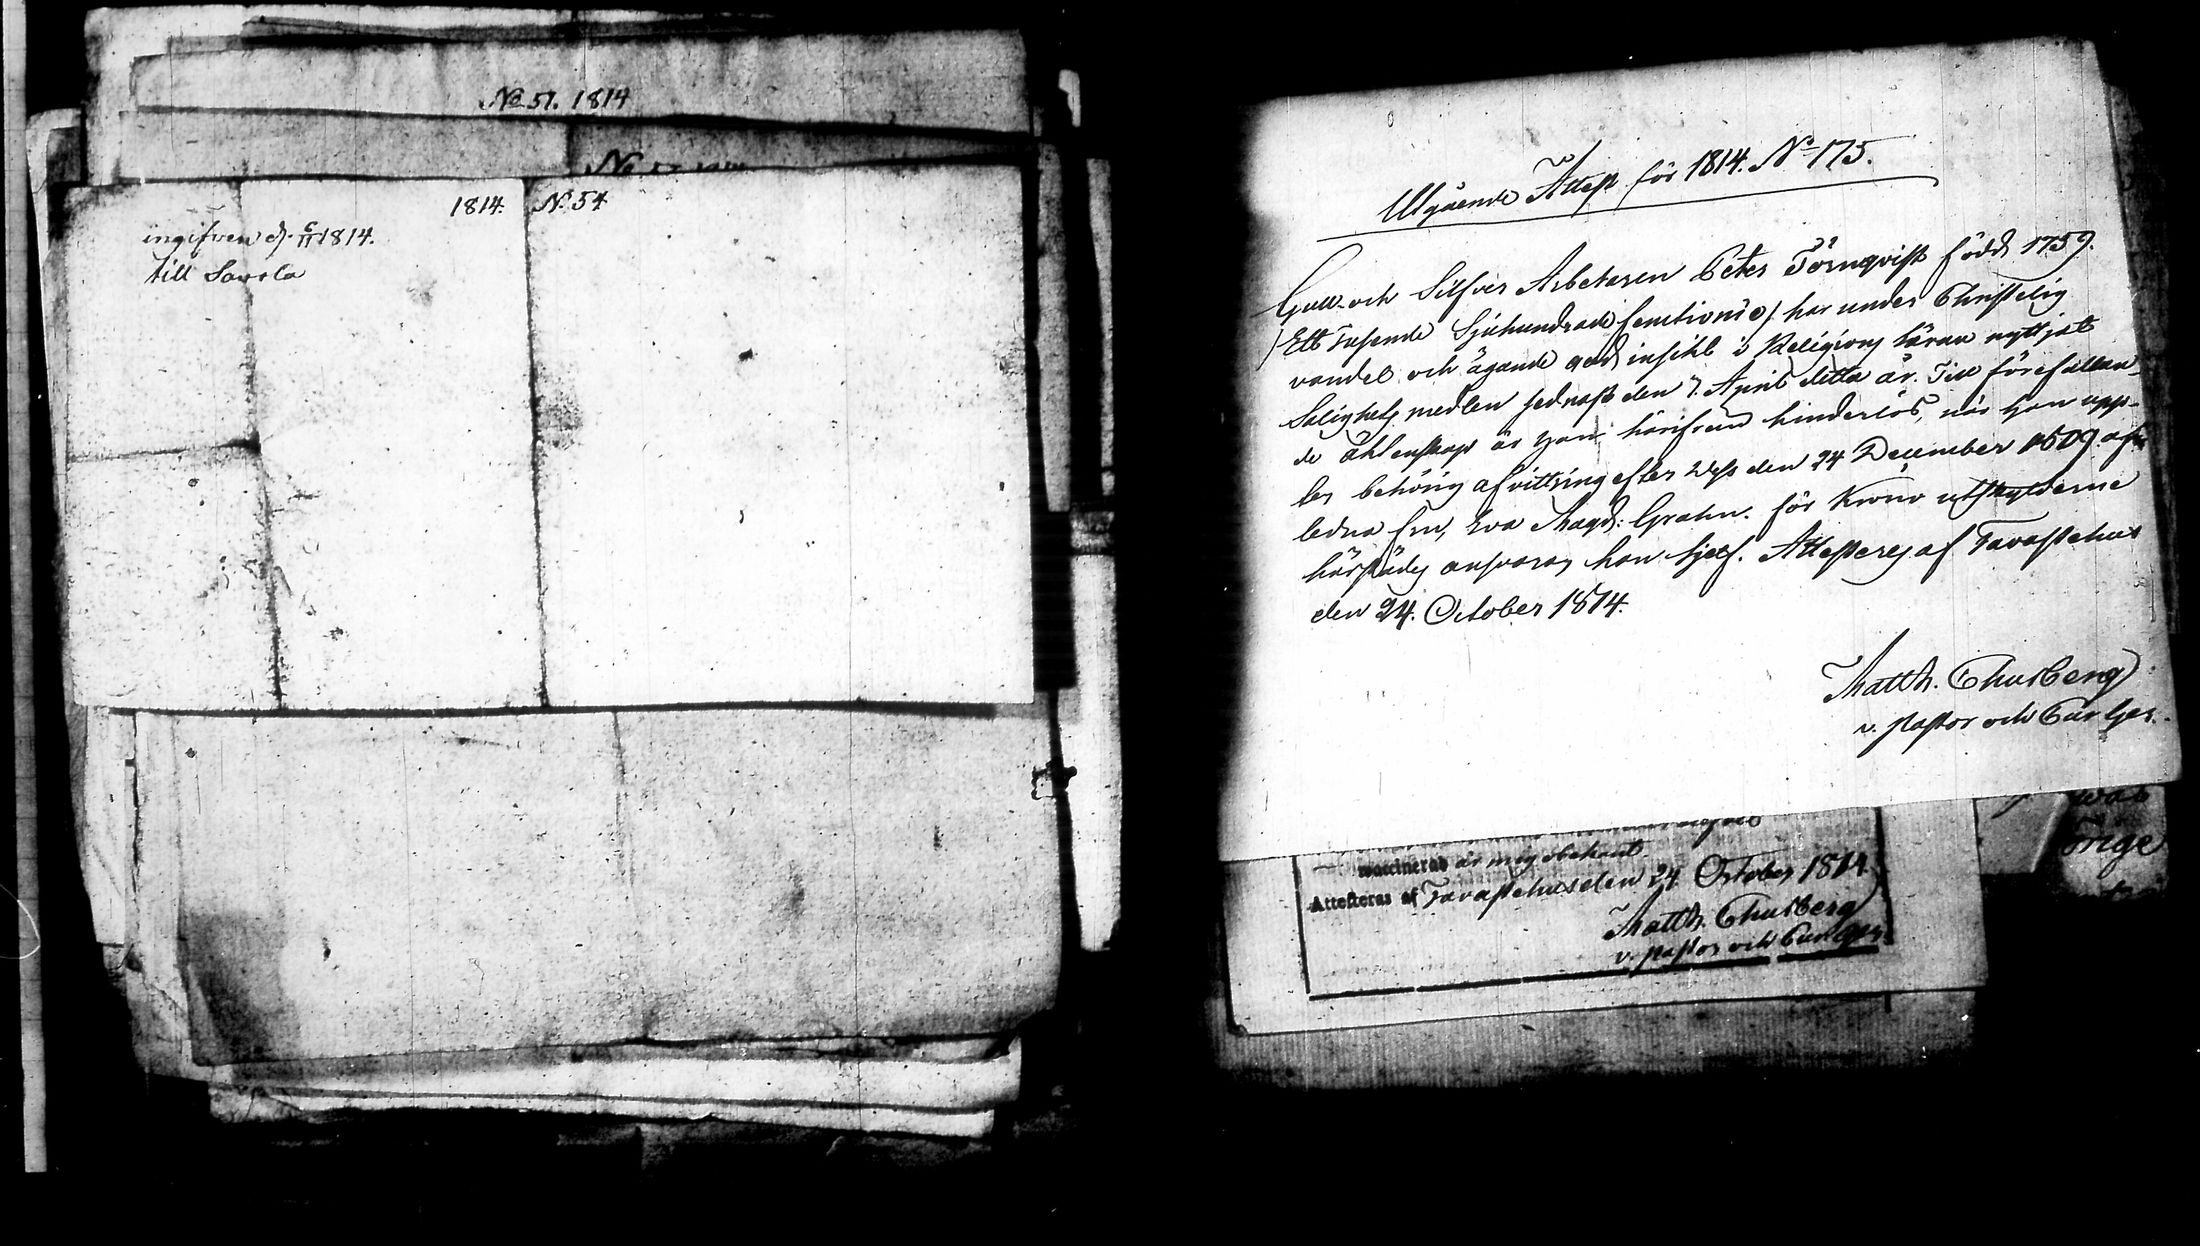 No 51. 1814
1814. N. 54
ingifven d. 6/11 1814.
till Savola
Utgående Attest för 1814. No 175.
Gull- och Silfver Arbetaren Peter Törnqvist född 1759.
/Ett Tusende Sjuhundrade femtionio/ har under Christelig
vandel och ägande god insikt i Religions läran nyttjat
Salighets medlen sednast den 7. April detta år. Till förefallan-
de äktenskap är han härifrån hinderlös, när han upp-
ter behörig afvittring efter dess den 24 December 1809 af-
ledna fru, Eva Magd: Grahn. för Krono utskylderne
härstädes ansvarar han sjelf. Attesteras af Tavastehus
den 24. October 1814.
Matth. Thusberg
v. Pastor och Sur Ger.
waccinerad är mig obekant.
Attesteras af Tavastehus den 24 October 1814
Matth. Thusberg
v. Pastor och